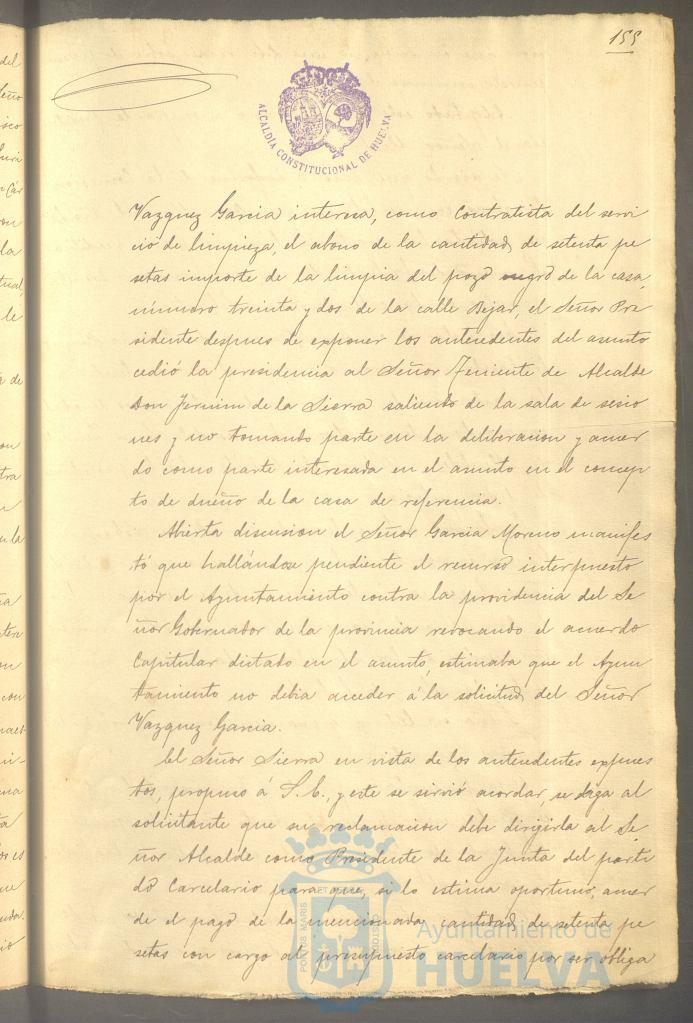 155
ALCALDÍA CONSTITUCIONAL DE HUELVA
Vazquez Garcia interesa, como contratista del servi
cio de limpieza, el abono de la cantidad de setenta pe
setas importe de la limpia del pozo negro de la casa,
número treinta y dos de la calle Bejar, el Señor Pre
sidente despues de exponer los antecedentes del asunto
cedió la presidencia al Señor Teniente de Alcalde
Don de la Sierra saliendo de la sala de sesio
nes y no tomando parte en la deliberacion y acuer
do como parte interesada en el asunto en el concep
to de dueño de la casa de referencia.
Abierta discusion el Señor Garcia Moreno manifes
tó que hallándose pendiente el recurso interpuesto
por el Ayuntamiento contra la providencia del Se
ñor Gobernador de la provincia revocando el acuerdo
Capitular dictado en el asunto, estimaba que el Ayun
tamiento no debia acceder á la solicitud del Señor
Vazquez Garcia.
El Señor Sierra en vista de los antecedentes expues
tos, propuso á S. E., y este se sirvió acordar, se diga al
solicitante que su reclamacion debe dirigirla al Se
ñor Alcalde como Presidente de la Junta del parti
do Carcelario para que, si lo estima oportuno, acuer
de el pago de la mencionada cantidad de setenta pe
setas con cargo al presupuesto carcelario por ser obliga
PORTUS MARIS ET TERRAE CUSTODIA
Ayuntamiento de
HUELVA